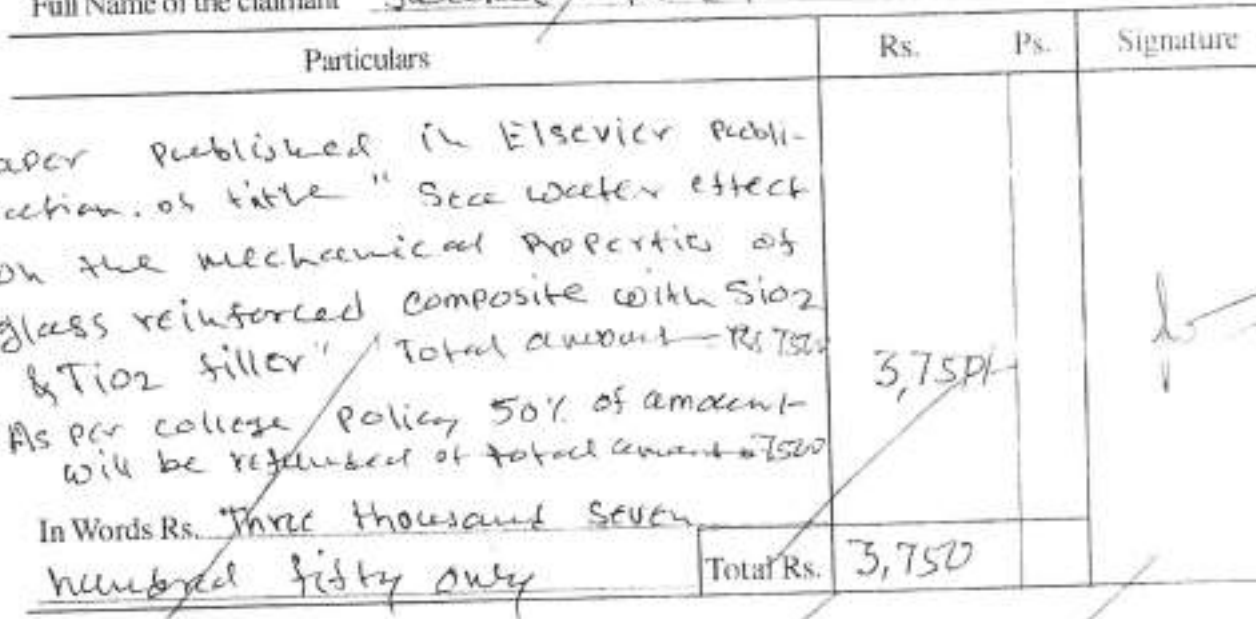 Full Name of the claimant
Particulars Rs. Ps. Signature
aper published in Elsevier publi-
cation. of title " Sea water effect
on the mechanical properties of
glass reinforced composite with Sio2
& Tio2 filler" Total amount - Rs 7500
3,750/-
As per college policy 50% of amount
will be refunded of total amount 7500
In Words Rs. Three thousand seven
hundred fifty only Total Rs. 3,750